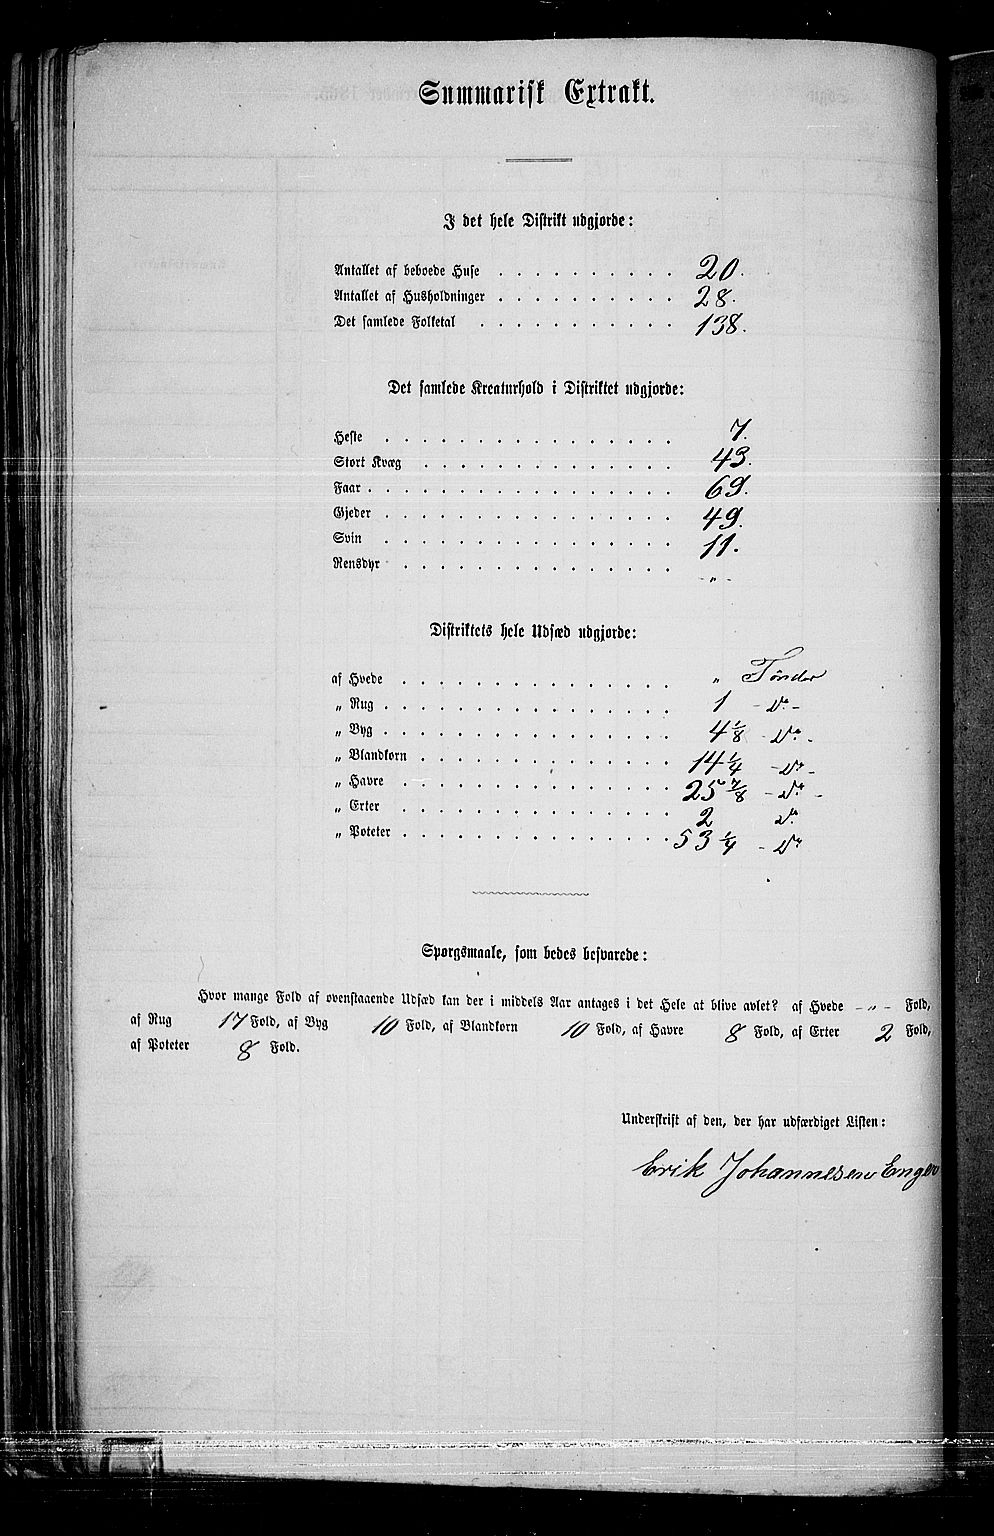 Summarisk Extrakt.
I det hele Distrikt udgjorde:
Antallet af beboede Huse . . . . . . . . . . 20.
Antallet af Husholdninger . . . . . . . . . . 28.
Det samlede Folketal . . . . . . . . . . . 138.
Det samlede Kreaturhold i Distriktet udgjorde:
Heste . . . . . . . . . . . . . . . . 7.
Stort Kvæg . . . . . . . . . . . . . . 43.
Faar . . . . . . . . . . . . . . . . . 69.
Gjeder . . . . . . . . . . . . . . . . 49.
Svin . . . . . . . . . . . . . . . . 11.
Rensdyr . . . . . . . . . . . . . . . - „ -
Distriktets hele Udsæd udgjorde:
af Hvede . . . . . . . . . . . . . . . „ Tønder
„ Rug . . . . . . . . . . . . . . . . 1 - Do -
„ Byg . . . . . . . . . . . . . . . . 4 1/8 - Do -
„ Blandkorn . . . . . . . . . . . . . . 14 1/4 - Do -
„ Havre . . . . . . . . . . . . . . . 25 7/8 - Do -
„ Erter . . . . . . . . . . . . . . . 2 Do
„ Poteter . . . . . . . . . . . . . . . 53 1/4 - Do
Spørgsmaale, som bedes besvarede:
Hvor mange Fold af ovenstaaende Udsæd kan der i middels Aar antages i det Hele at blive avlet? af Hvede - „ - Fold,
af Rug 17 Fold, af Byg 10 Fold, af Blandkorn 10 Fold, af Havre 8 Fold, af Erter 2 Fold,
af Poteter 8 Fold.
Underskrift af den, der har udfærdiget Listen:
Erik Johannesen Engen